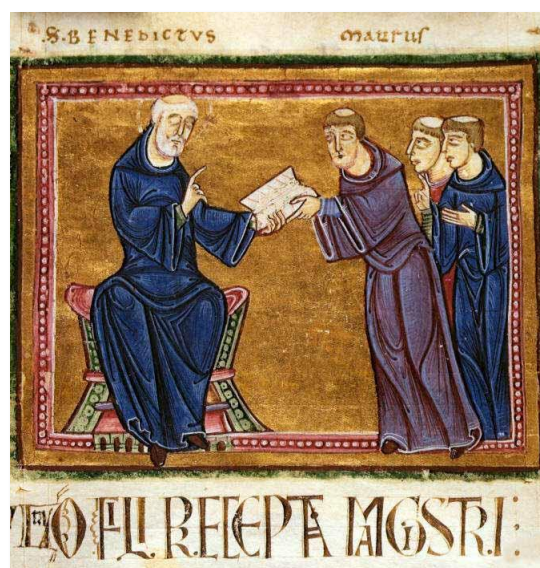 S. BENEDICTVS MAURUS
O FILI RECEPTA MAGISTRI: